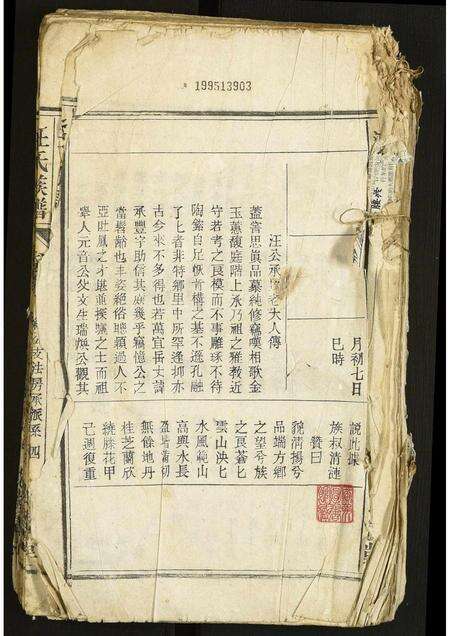 199513903
月初七日
巳時
汪公承
老大人傳
蓋嘗思眞品慕純修竊嘆相歌金
玉蕙馥庭階上承乃祖之雅教近
守若考之良模而不事雕琢不待
陶鎔自足恢肯構之基不遜孔融
了了者非特鄉里中所罕逢抑亦
古今來不多得也若萬宜岳丈諱
承豐字助信其庶幾乎竊憶公之
當髫齡也丰姿絕俗聰穎過人不
亞吐鳳之才堪並探驪之士而祖
舉人元音公父文生瑞煥公觀其
說此謀
族叔清漣
贊曰
貌清揚兮
品端方鄉
之望兮族
之良蒼匕
雲山泱匕
水風範山
高與水長
盈
無餘地丹
桂芝蘭欣
繞膝花甲
己週復重
汪氏族譜
文法房承派系
四